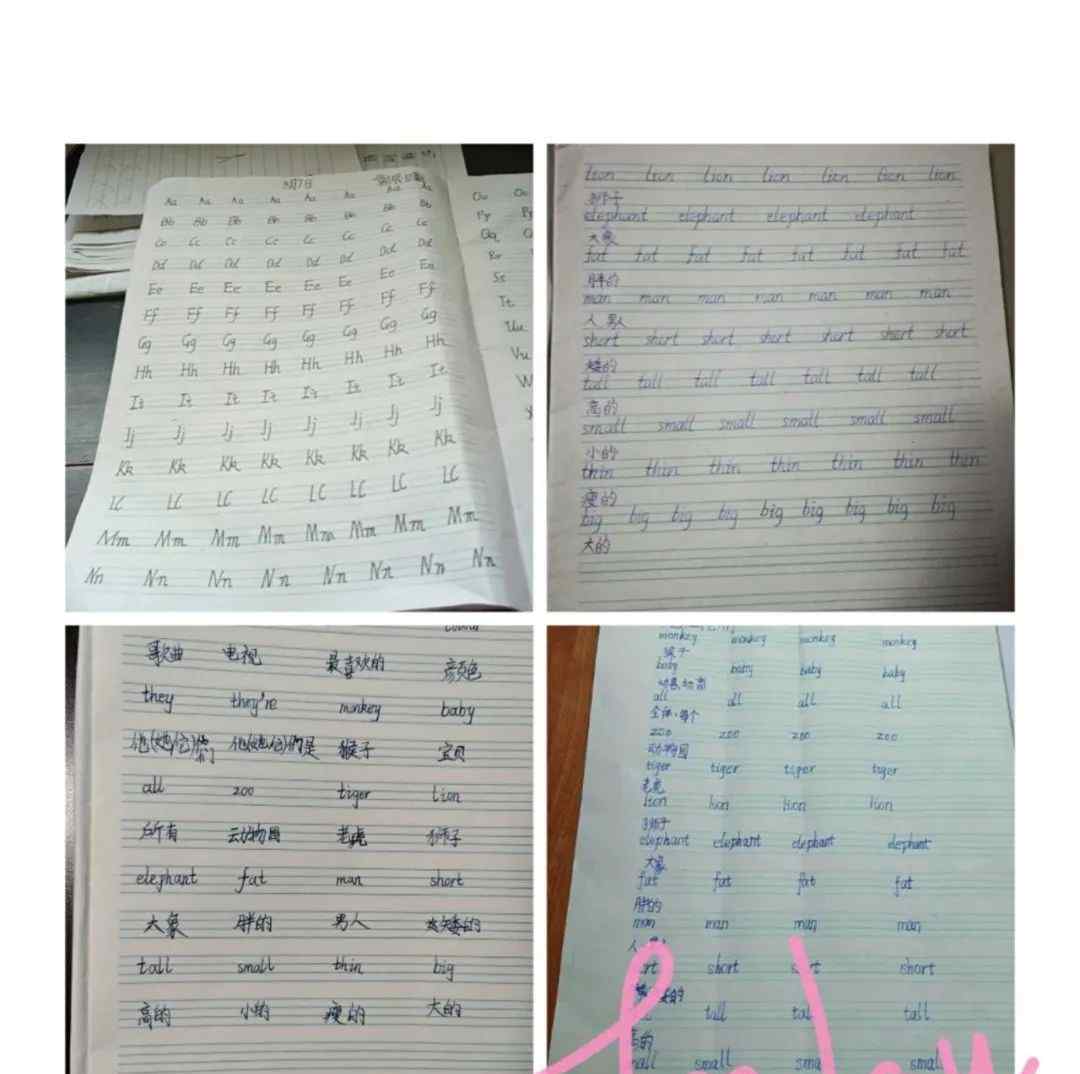 3月7日
Aa Aa Aa Aa Aa Aa Aa Aa
Bb Bb Bb Bb Bb Bb Bb Bb
Cc Cc Cc Cc Cc Cc Cc Cc
Dd Dd Dd Dd Dd Dd Dd Dd
Ee Ee Ee Ee Ee Ee Ee Ee
Ff Ff Ff Ff Ff Ff Ff Ff
Gg Gg Gg Gg Gg Gg Gg Gg
Hh Hh Hh Hh Hh Hh Hh Hh
Ii Ii Ii Ii Ii Ii Ii Ii
Jj Jj Jj Jj Jj Jj Jj Jj
Kk Kk Kk Kk Kk Kk Kk Kk
Ll Ll Ll Ll Ll Ll Ll Ll
Mm Mm Mm Mm Mm Mm Mm Mm
Nn Nn Nn Nn Nn Nn Nn Nn
Oo Oo
Pp
Qq
Rr
Ss
Tt
Uu
Vv
lion lion lion lion lion lion lion
狮子
elephant elephant elephant elephant
大象
fat fat fat fat fat fat fat fat
胖的
man man man man man man man
人 男人
short short short short short short short
矮的
tall tall tall tall tall tall tall
高的
small small small small small small
小的
thin thin thin thin thin thin thin
瘦的
big big big big big big big big big
大的
歌曲 电视 最喜欢的 颜色
they they're monkey baby
他(她/它)们 他(她/它)们是 猴子 宝贝
all zoo tiger lion
所有 动物园 老虎 狮子
elephant fat man short
大象 胖的 男人 矮的
tall small thin big
高的 小的 瘦的 大的
monkey monkey monkey monkey
猴子
baby baby baby baby
all all all all
全体,每个
zoo zoo zoo zoo
动物园
tiger tiger tiger tiger
老虎
lion lion lion lion
狮子
elephant elephant elephant elephant
大象
fat fat fat fat
胖的
man man man man
人
short short
矮的
tall tall
高的
small small